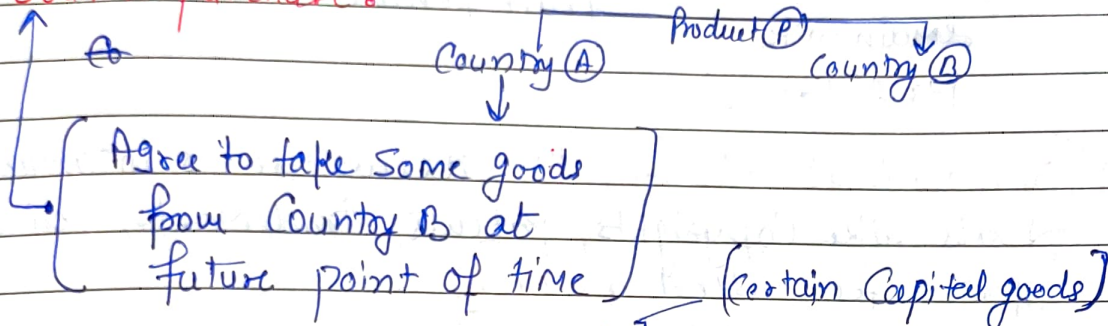 Product (P)
Country (A) Country (B)
Agree to take some goods
from Country B at
future point of time
(Certain Capital goods)